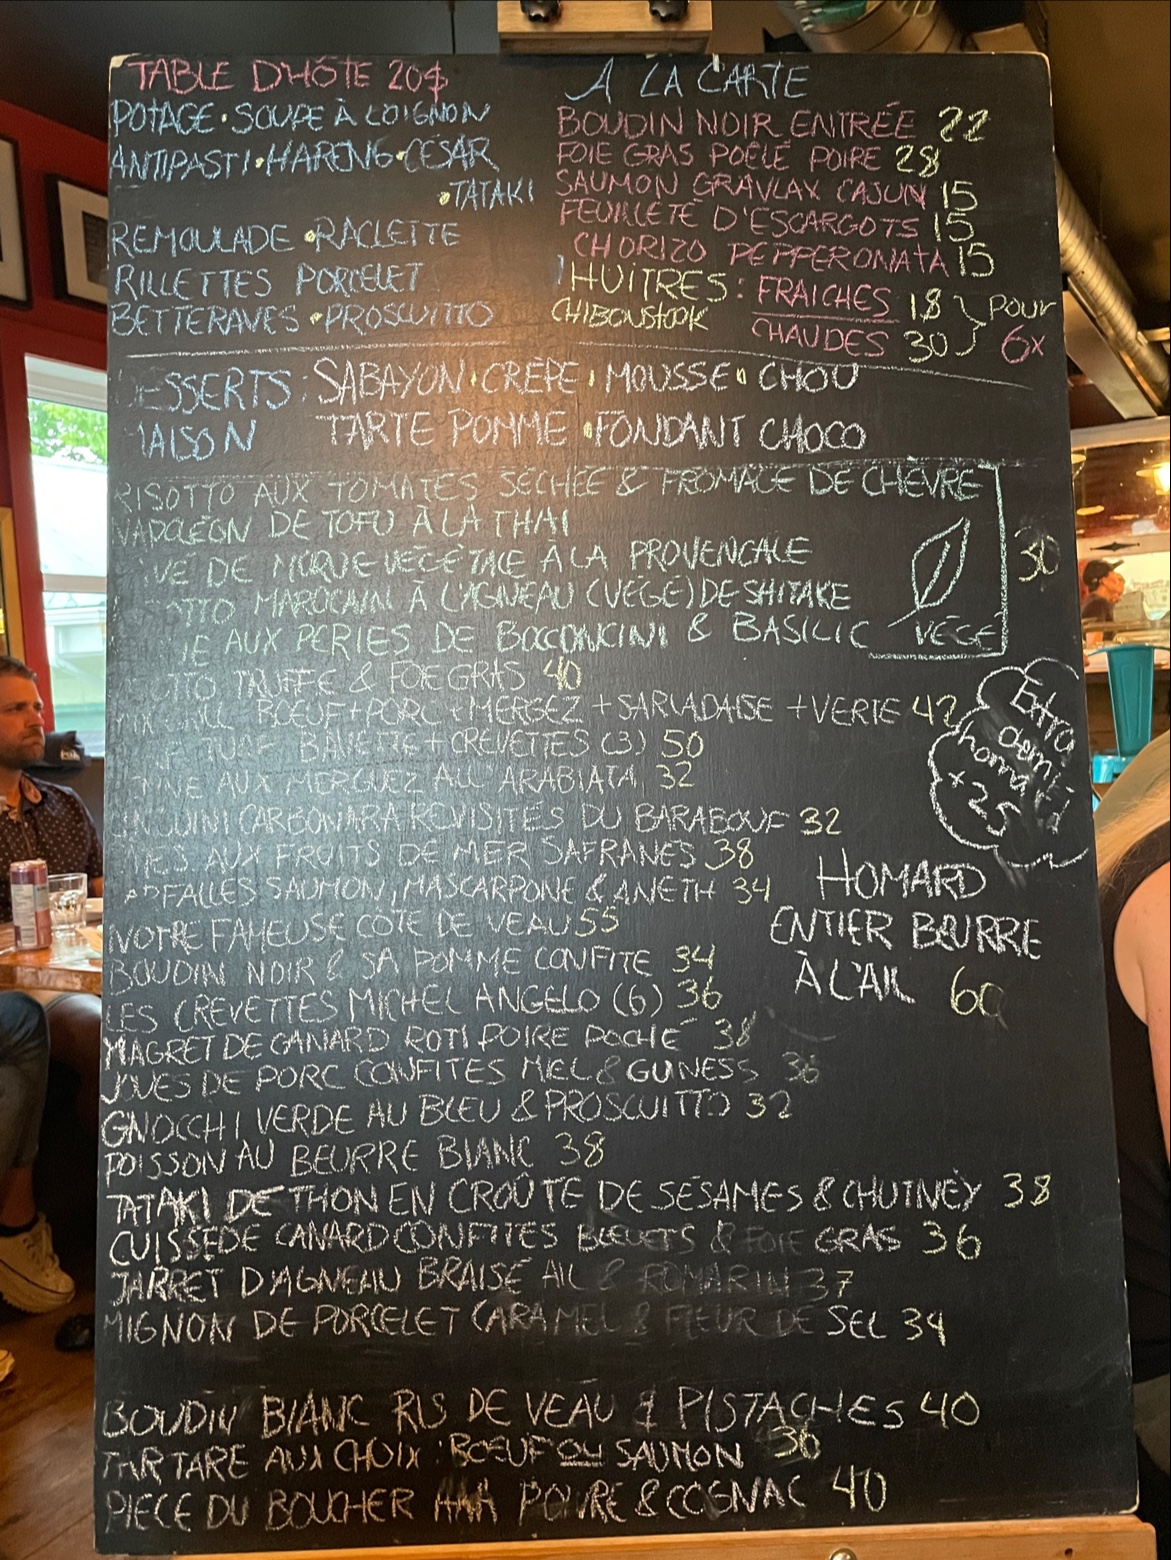 TABLE D'HÔTE 20$
POTAGE • SOUPE À L'OIGNON
ANTIPASTI • HARENG • CÉSAR
• TATAKI
REMOULADE • RACLETTE
RILLETTES PORCELET
BETTERAVES • PROSCUITTO
À LA CARTE
BOUDIN NOIR ENTRÉE 22
FOIE GRAS POÊLÉ POIRE 28
SAUMON GRAVLAX CAJUN 15
FEUILLETÉ D'ESCARGOTS 15
CHORIZO PEPPERONATA 15
HUÎTRES: FRAICHES 18 } POUR
CHIBOUSTOOK CHAUDES 30 } 6X
DESSERTS: SABAYON • CRÊPE • MOUSSE • CHOU
MAISON TARTE POMME • FONDANT CHOCO
RISOTTO AUX TOMATES SÉCHÉE & FROMAGE DE CHÈVRE
NAPOLÉON DE TOFU À LA THAI
DE MORUE VÉGÉTALE À LA PROVENCALE
30
MAROCAIN À L'AGNEAU (VÉGÉ) DE SHITAKE
AUX PERLES DE BOCCONCINI & BASILIC
VÉGÉ
TRUFFE & FOIE GRAS 40
BOEUF + PORC + MERGEZ + SARLADAISE + VERTE 42
TURF BAVETTE + CREVETTES (3) 50
AUX MERGUEZ ALL ARABIATA 32
Extra
demi
homard
+25
CARBONARA REVISITÉS DU BARABOUF 32
AUX FRUITS DE MER SAFRANÉS 38
FARFALLES SAUMON, MASCARPONE & ANETH 34
NOTRE FAMEUSE CÔTE DE VEAU 55
BOUDIN NOIR & SA POMME CONFITE 34
LES CREVETTES MICHEL ANGELO (6) 36
HOMARD
ENTIER BEURRE
À L'AIL 60
MAGRET DE CANARD ROTI POIRE POCHÉ 38
JOUES DE PORC CONFITES MIEL & GUINESS 36
GNOCCHI VERDE AU BLEU & PROSCUITTO 32
POISSON AU BEURRE BLANC 38
TATAKI DE THON EN CROÛTE DE SÉSAMES & CHUTNEY 38
CUISSE DE CANARD CONFITES BLEUETS & FOIE GRAS 36
JARRET D'AGNEAU BRAISÉ AIL & ROMARIN 37
MIGNON DE PORCELET CARAMEL & FLEUR DE SEL 34
BOUDIN BLANC RIS DE VEAU & PISTACHES 40
TARTARE AUX CHOIX: BOEUF OU SAUMON 36
PIECE DU BOUCHER AAA POIVRE & COGNAC 40